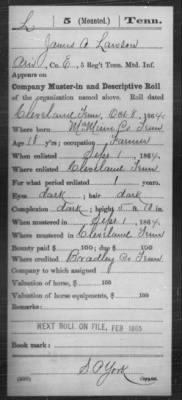 L | 5 (Mounted.) | Tenn.
James A Lawson
Co. E, 5 Reg't Tenn. Mtd. Inf.
Appears on
Company Muster-in and Descriptive Roll
of the organization named above. Roll dated
Cleveland Tenn, Oct 8, 1864.
Where born McMinn Co Tenn
Age 18 y'rs; occupation Farmer
When enlisted Sept 1, 1864.
Where enlisted Cleveland Tenn
For what period enlisted 1 years.
Eyes dark; hair dark
Complexion dark; height 5 ft. 10 in.
When mustered in Sept 1, 1864.
Where mustered in Cleveland Tenn
Bounty paid $ 100; due $ 100
Where credited Bradley Co Tenn
Company to which assigned
Valuation of horse, $ 100
Valuation of horse equipments, $ 100
Remarks:
NEXT ROLL ON FILE, FEB 1865
Book mark:
S. P. York
Copyist.